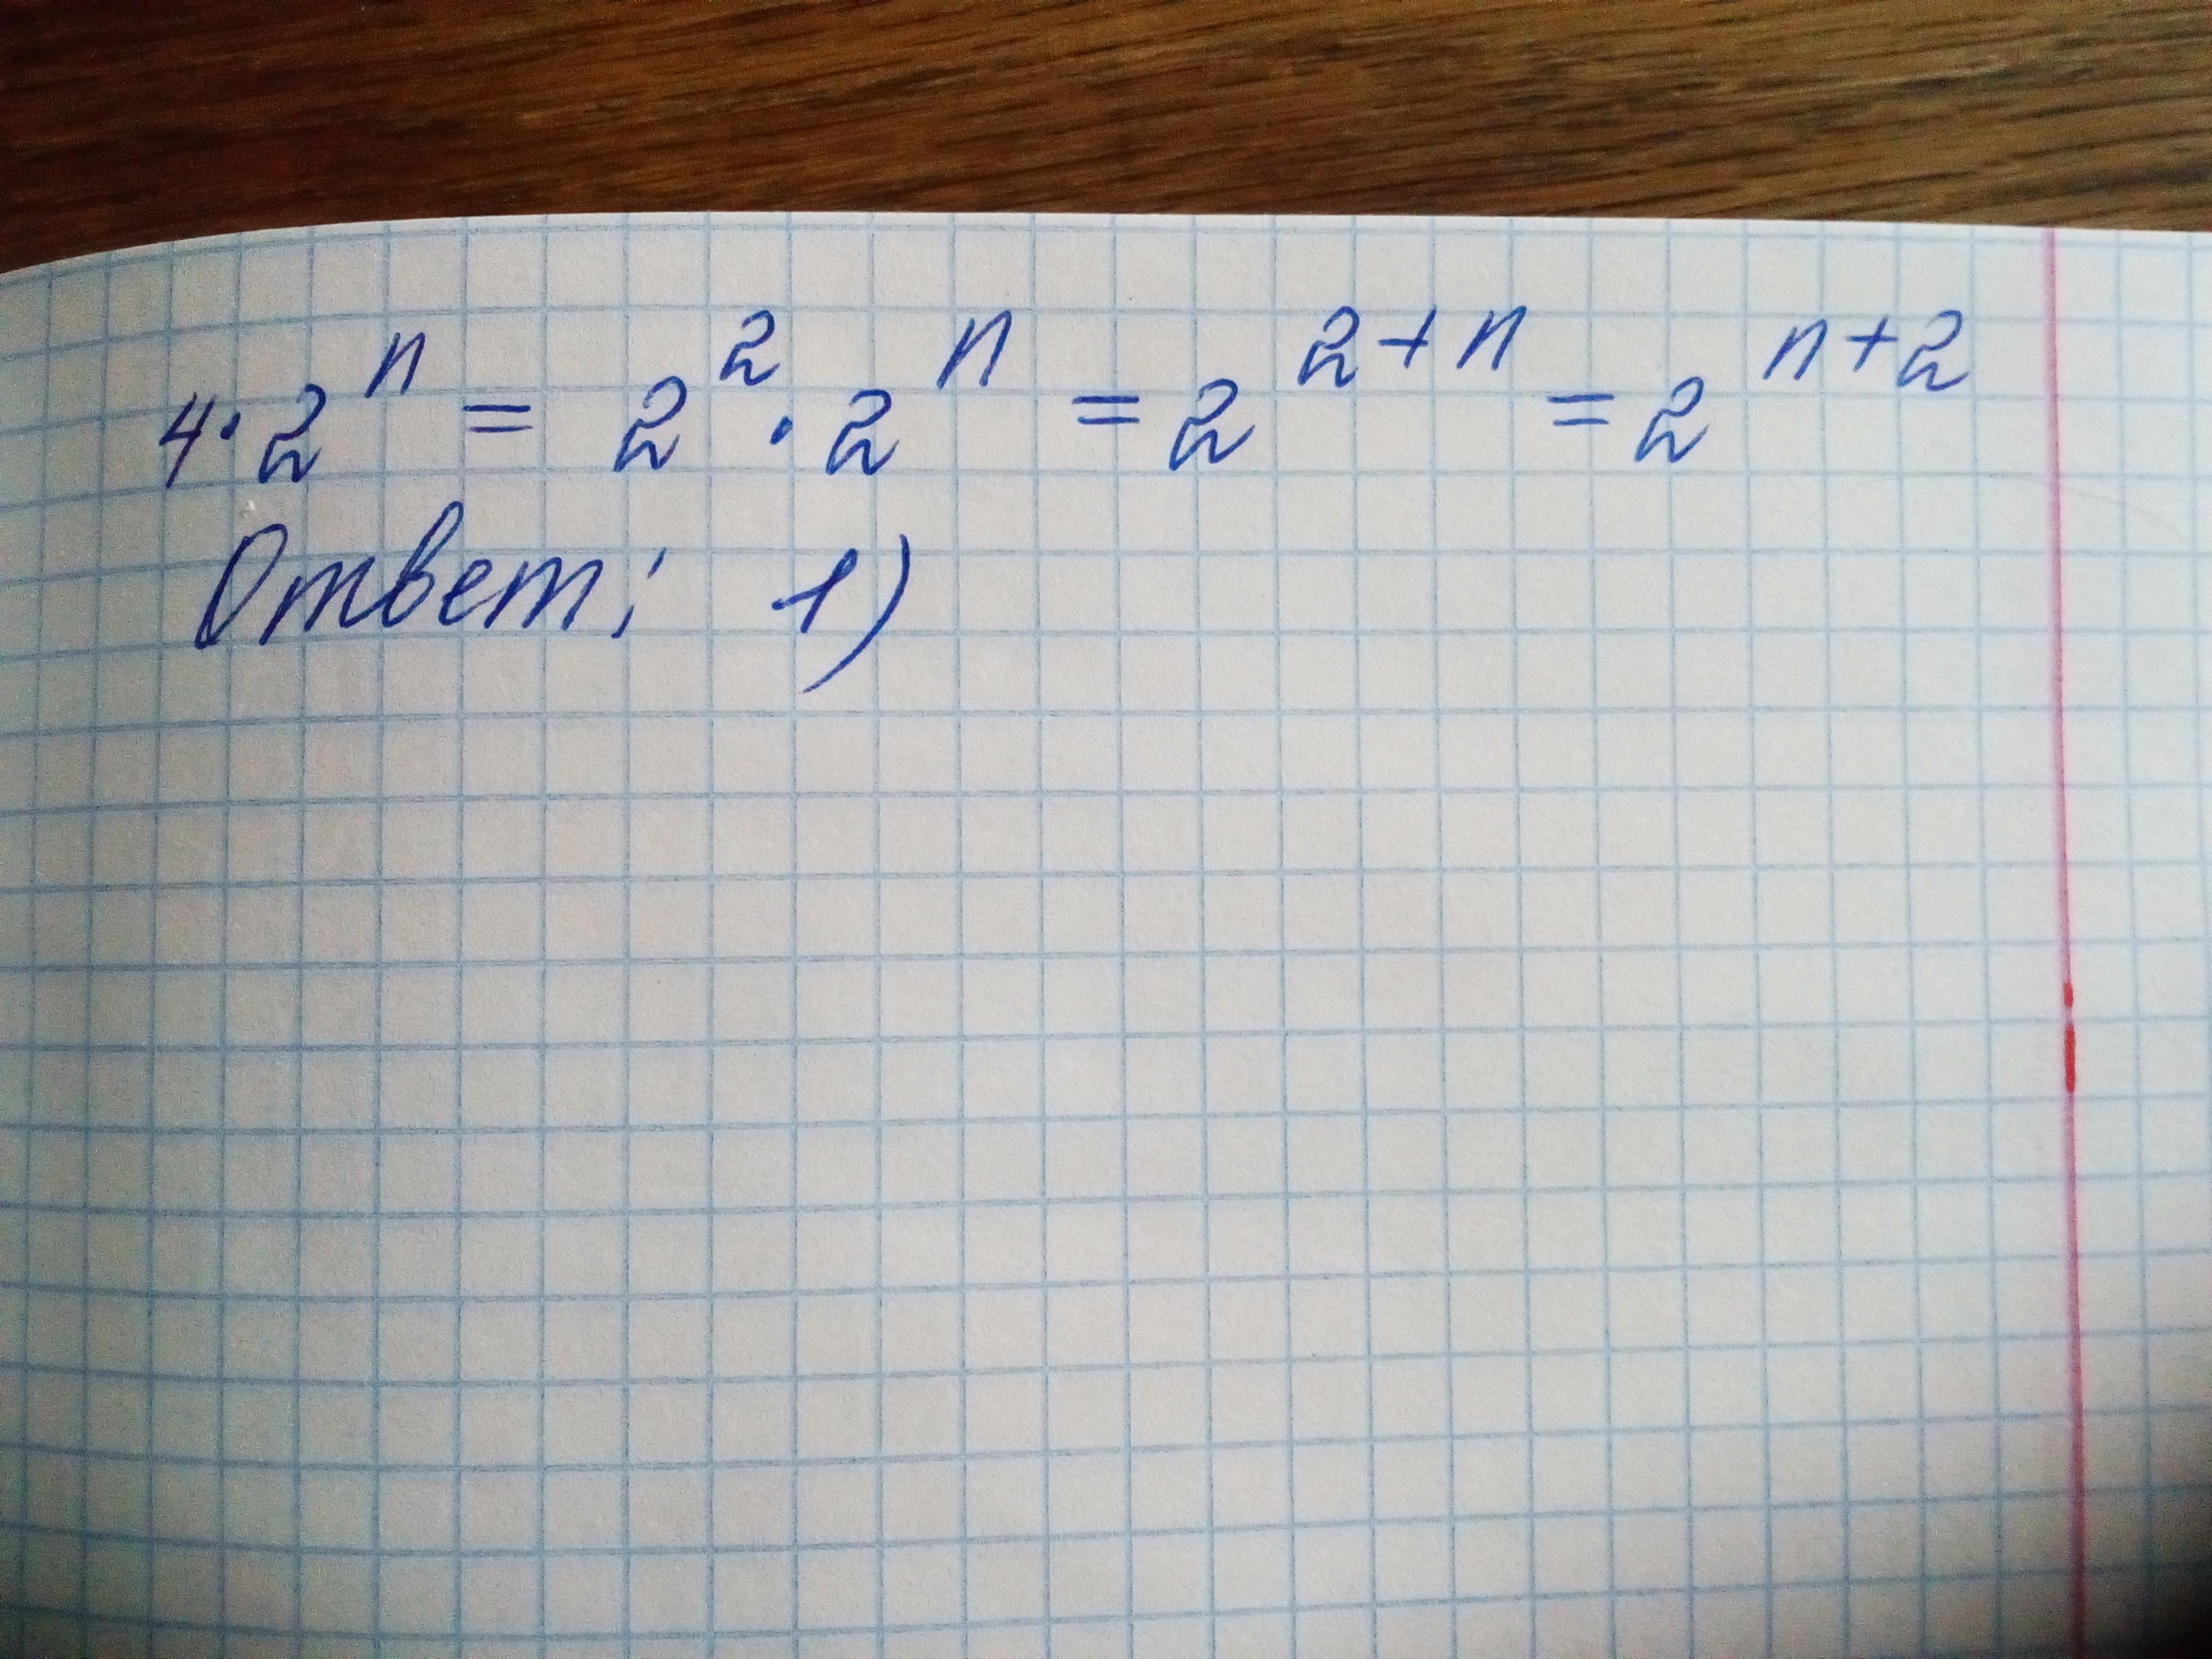 4·2ⁿ = 2²·2ⁿ = 2²⁺ⁿ = 2ⁿ⁺²
Ответ: 1)